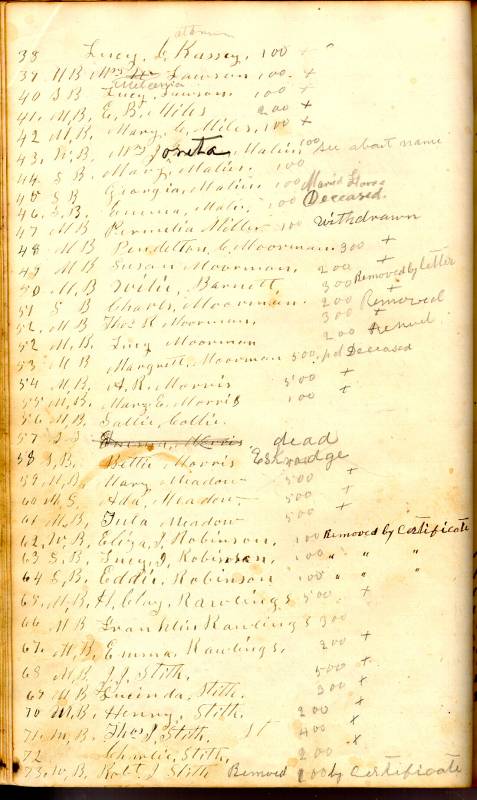 38 Lucy, C Kassey, 100 +
39 M B Mrs Lawson 100. +
40 S B Lucy, Lawson. 100 +
41. M, B, E, B, Miles 200 +
42 M, B, Mary, C, Miles, 100 +
43, M, B, Mrs Joneta, Malin 100 see about name
44 S B Mary Malin. 100
45 S B Georgia, Malin 100
46, S, B, Emma, Malin, 100 Deceased.
47 M B Permelia Miller 100 Withdrawn
48 M B Pendelton, C, Moorman. 300 +
49 M B Susan Moorman, 200 +
50 M, B Willie, Barnett, 300 Removed by letter
51 S B Charls, Moorman. 200 +
52, M B Thos R Moorman, 300 Removed
52 M, B, Lucy Moorman 200
53 M B Margrett, Moorman 500, pd Deceased
54 M, B, A. R. Morris 500 +
55 M, B, Mary E, Morris 100 +
56 M, B, Sallie, Collie.
57 Emma, Morris dead
58 S, B, Bettie Morris Eskridge
59 M, B, Mary Meadow 500 +
60 M S, Ada, Meadow 500 +
61 M, B, Tula Meadow 500 +
62, M, B, Eliza, J, Robinson, 100 Removed by Certificate
63 S, B, Lucy, J, Robinson, 100 " " "
64 S, B, Eddie, Robinson 100 " " "
65, M, B, H, Clay, Rawlings 500 +
66 M B Franklin Rawlings 300
67. M, B, Emma, Rawlings, 200 +
68 M, B, J. J. Stith. 500 +
69 M B Lucinda, Stith. 300 +
70 M, B, Henry, Stith, 200 +
71, M, B, Thos J, Stith. 400 +
72 Charlie, Stith, 200 +
73, M, B, Robt, J Stith Removed 200 by Certificate